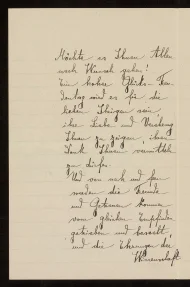 Möchte es Ihnen Allen
nach Wunsch gehen!
Ein froher Glücks- Freu-
dentag wird es für die
lieben Ihrigen sein,
ihre Liebe und Verehrung
Ihnen zu zeigen, ihren
Dank Ihnen vermitteln
zu dürfen.
Und von nah und fern
werden die Freunde
und Getreuen kommen
vom gleichen Empfinden
getrieben und beseelt,
und die Ehrungen der
Wissenschaft